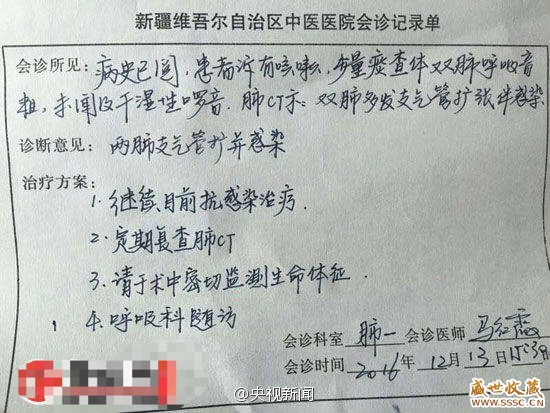 新疆维吾尔自治区中医医院会诊记录单
会诊所见：病史已阅，患者诉有咳嗽，少量痰查体双肺呼吸音
粗，未闻及干湿性啰音．肺CT示：双肺多发支气管扩张伴感染
诊断意见：两肺支气管扩并感染
治疗方案：
1. 继续目前抗感染治疗．
2. 定期复查肺CT
3. 请于术中密切监测生命体征．
4. 呼吸科随访
会诊科室 肺一 会诊医师 马红霞
会诊时间 2016年 12月 13日
@央视新闻
盛世收藏网
www.sssc.cn